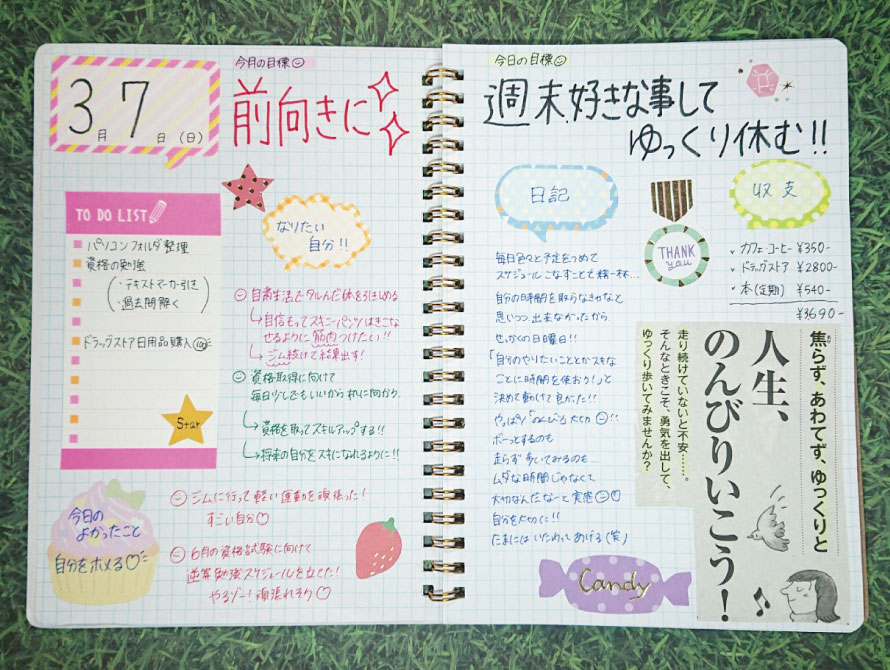 3月7日(日)
今月の目標
前向きに
TO DO LIST
パソコンフォルダ整理
資格の勉強
・テキストマーカー引き
・過去問解く
ドラッグストア日用品購入
Star
なりたい
自分!!
自粛生活でタルんだ体を引きしめる
↳自信もってスキニーパンツはきこな
せるように筋肉つけたい!!
↳ジム続けて結果出す!
資格取得に向けて
毎日少しでもいいからそれに向かう。
↳資格を取ってスキルアップする!!
↳将来の自分をスキになれるように!!
今日の
よかったこと
自分をホメる♡
ジムに行って軽い運動を頑張った!
すごい自分♡
6月の資格試験に向けて
逆算勉強スケジュールを立てた!
やるゾー!頑張れそう♡
今日の目標
週末、好きな事して
ゆっくり休む!!
日記
毎日色々と予定をつめて
スケジュールこなすことも精一杯…
自分の時間を取らなきゃなと
思いつつ、出来なかったから
せっかくの日曜日!!
「自分のやりたいこととかスキな
ことに時間を使おう!」と
決めて動けて良かった!!
やっぱり「のんびり」大切!!
ボーっとするのも
走らず歩いてみるのも…
ムダな時間じゃなくて
大切なんだなーと実感
自分を大切に!!
たまにはいたわってあげる(笑)
THANK
you
収支
✓カフェ・コーヒー ¥350-
✓ドラッグストア ¥2800-
✓本(定期) ¥540-
¥3690-
焦らず、あわてず、ゆっくりと
人生、
のんびりいこう!
走り続けていないと不安……。
そんなときこそ、勇気を出して、
ゆっくり歩いてみませんか?
Candy